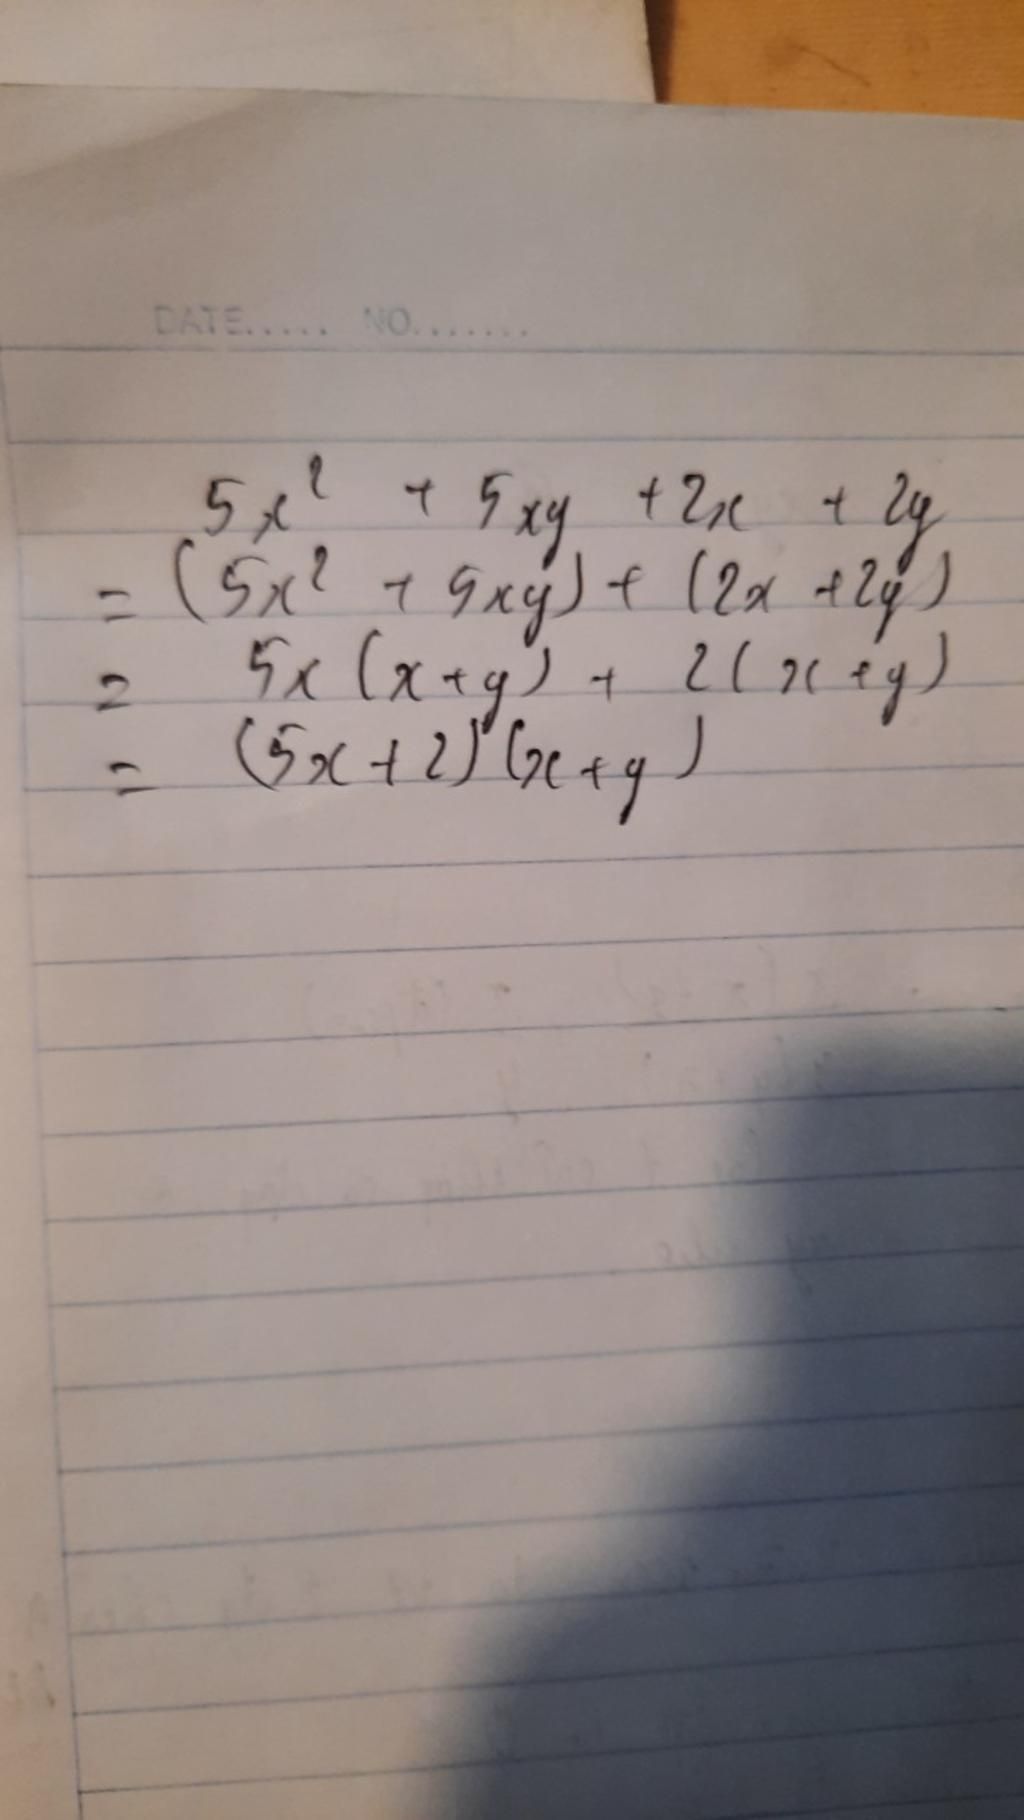 DATE..... NO.......
5x² + 5xy + 2x + 2y
= (5x² + 5xy) + (2x + 2y)
= 5x (x + y) + 2 (x + y)
= (5x + 2) (x + y)